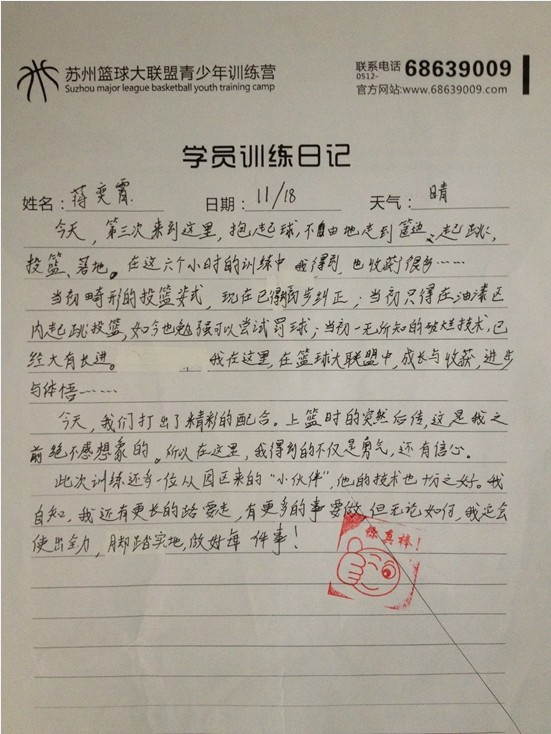 苏州篮球大联盟青少年训练营
Suzhou major league basketball youth training camp
联系电话 0512- 68639009
官方网站:www.68639009.com
学员训练日记
姓名: 蒋奕霄 日期: 11/18 天气: 晴
今天，第三次来到这里，抱起球，不自由地走到筐边、起跳、
投篮、落地。在这六个小时的训练中我得到，也收获了很多……
当初畸形的投篮姿式，现在已得初步纠正；当初只得在油漆区
内起跳投篮，如今也勉强可以尝试罚球；当初一无所知的破烂技术，已
经大有长进。 我在这里，在篮球大联盟中，成长与收获，进步
与体悟……
今天，我们打出了精彩的配合。上篮时的突然后传，这是我之
前绝不感想象的。所以在这里，我得到的不仅是勇气，还有信心。
此次训练还多一位从园区来的“小伙伴”，他的技术也十分之好。我
自知，我还有更长的路要走，有更多的事要做。但无论如何，我定会
使出全力，脚踏实地，做好每件事！
你真棒！